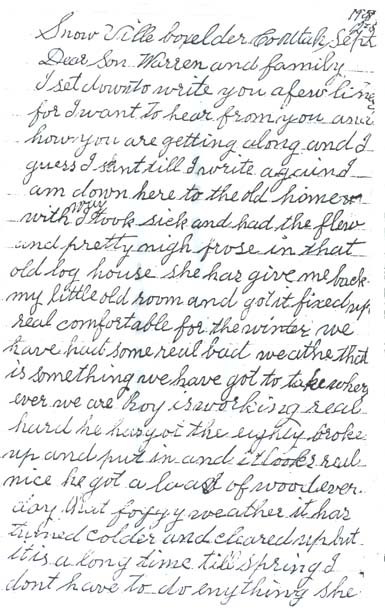 Snow Ville boxelder Co Utah Sept
Dear Son Warren and family
I set down to write you a few lines
for I want to hear from you and
how you are getting along and I
guess I shant till I write again I
am down here to the old home
with Roy I took sick and had the flew
and pretty nigh frose in that
old log house she has give me back
my little old room and got it fixed up
real comfortable for the winter we
have had some real bad weathe that
is something we have got to take wher
ever we are Roy is working real
hard he has got the eighty broke
up and put in and it looks real
nice he got a load of wood ever
day that foggy weather it has
turned colder and cleared up but
it is a long time till spring I
dont have to do enything she